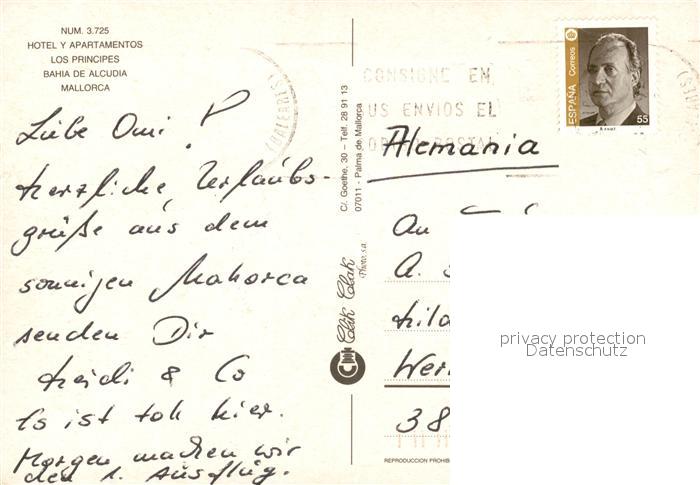 NUM. 3.725
HOTEL Y APARTAMENTOS
LOS PRINCIPES
BAHIA DE ALCUDIA
MALLORCA
Liebe Omi!
herzliche Urlaubs-
grüße aus dem
sonnigen Mahorca
senden Dir
Heidi & Co
Es ist toll hier.
Morgen machen wir
den 1. Ausflug.
C/. Goethe, 30 – Telf. 28 91 13
07011 - Palma de Mallorca
Clik Clak
Photo, s.a.
(BALEARES)
CONSIGNE EN
SUS ENVIOS EL
POSTAL
ESPAÑA Correos
55
Alemania
An
A.
Hild
Wer
38
REPRODUCCION PROHIB
privacy protection
Datenschutz